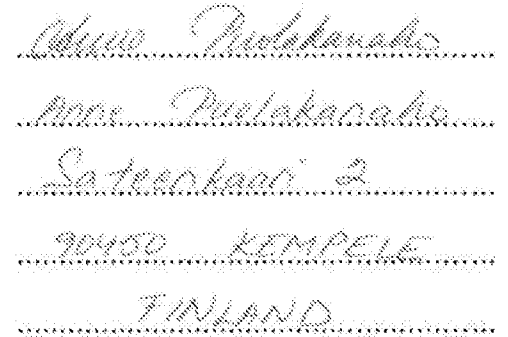 Puolakanaho
Anne Puolakanaho
Sateenkaari 2
90450 KEMPELE
FINLAND